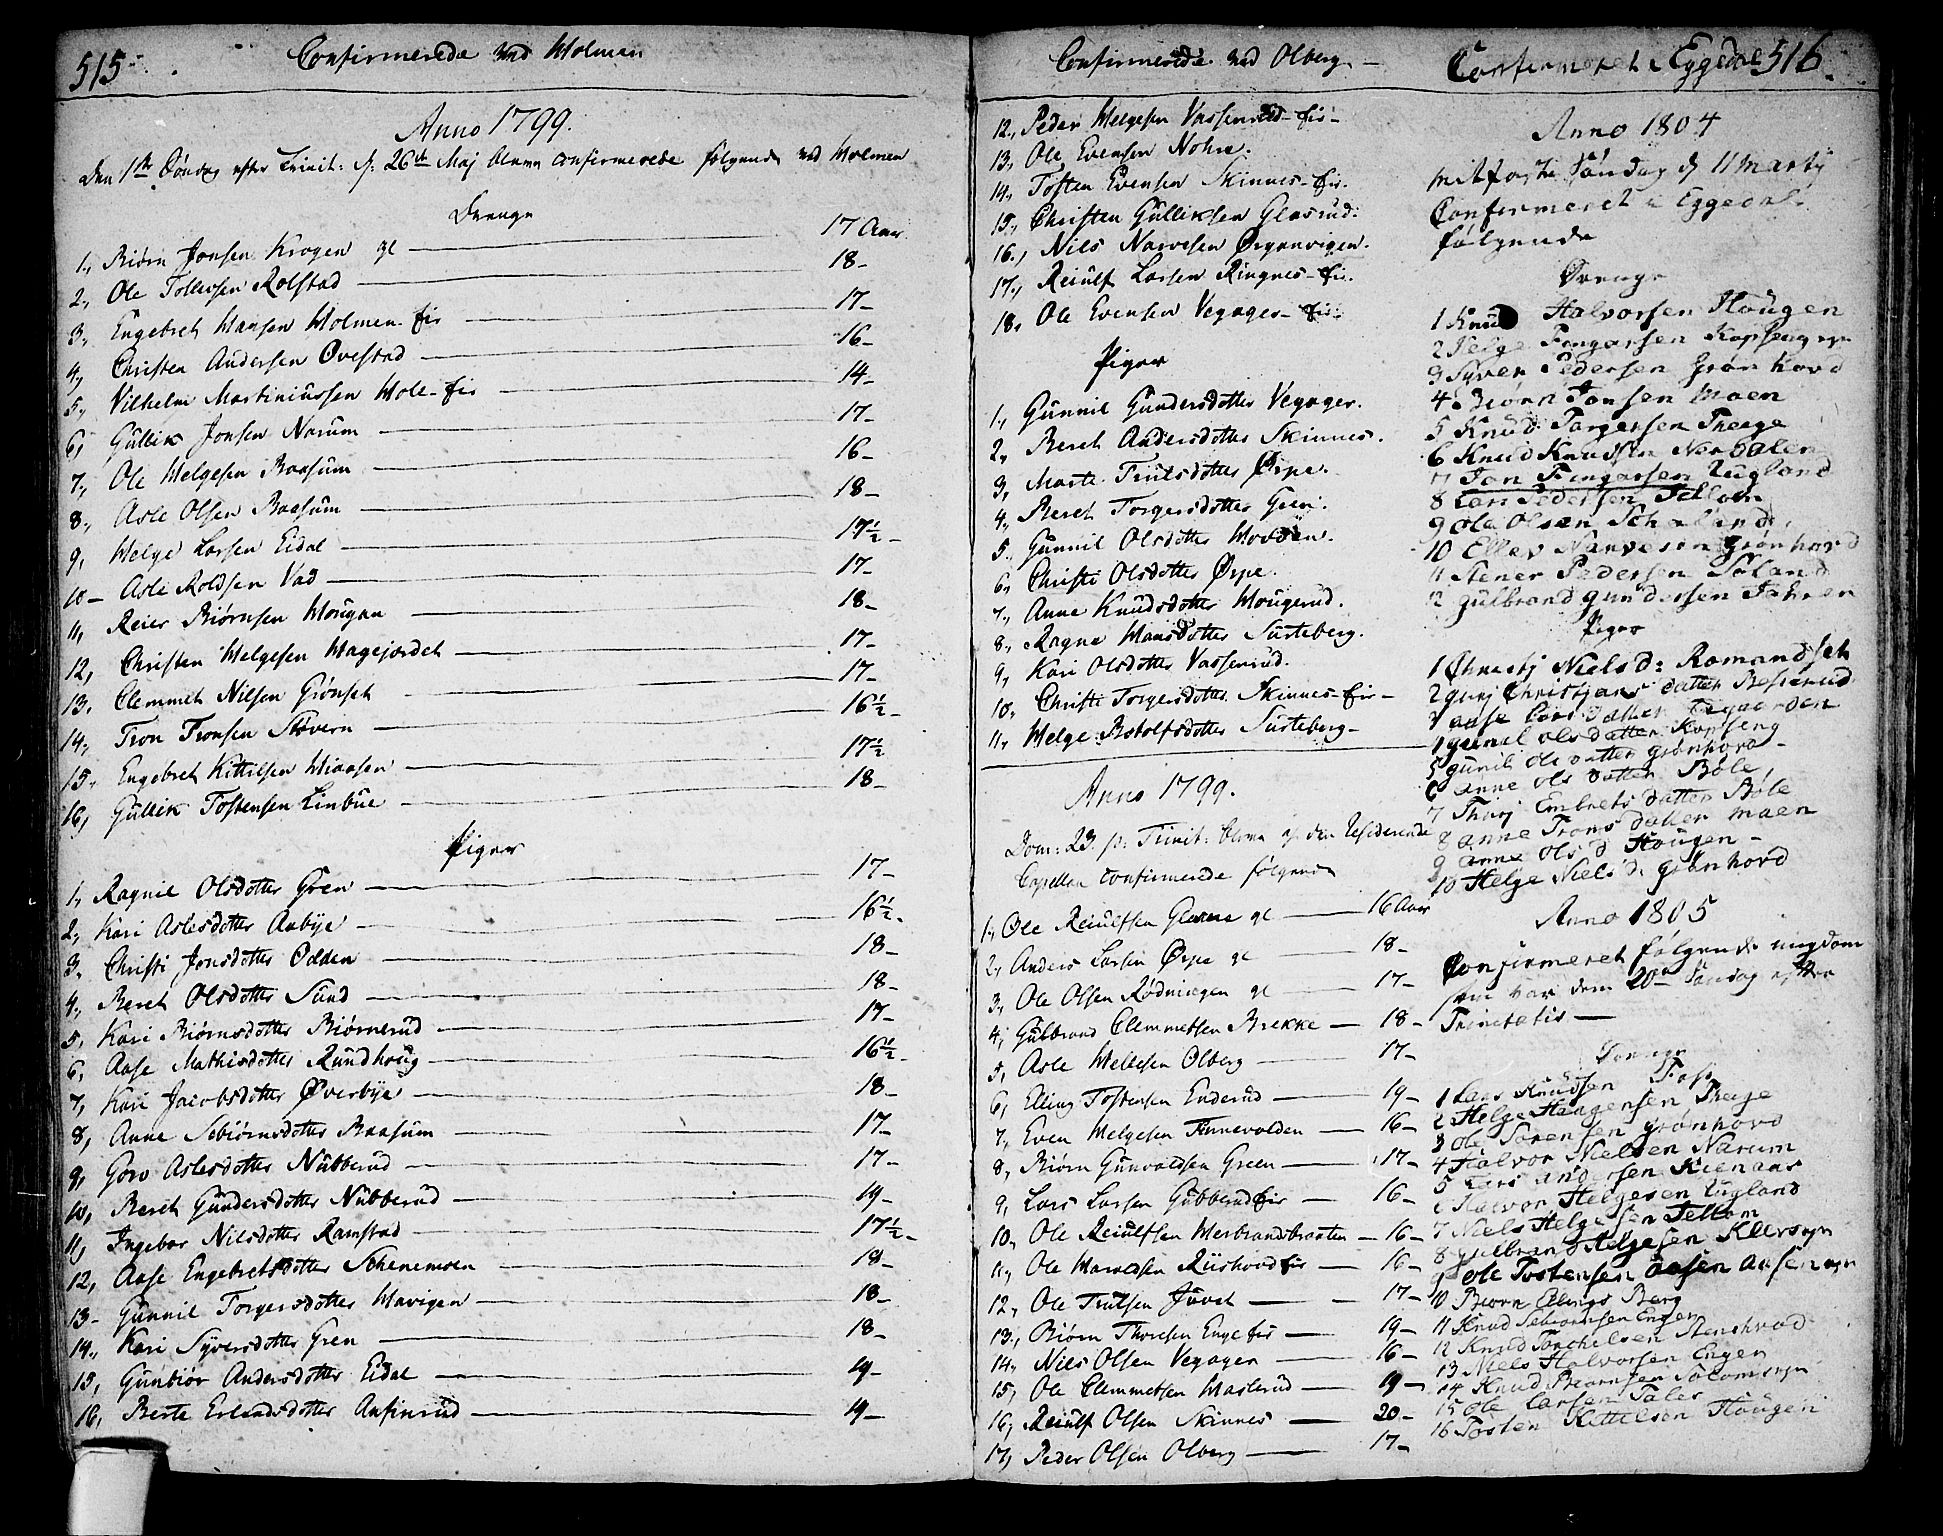 515
Confirmerede ved Holmen
Anno 1799.
Den 1ste Søndag efter Trinit: d: 26de Maj bleve confirmerede følgende ved Holmen
Drenge
1., Biørn Jonsen Krogen gl — 17 Aar
2., Ole Tollefsen Rolstad — 18 –
3, Engebret Hansen Holmen-eie — 17 –
4, Christen Andersen Ovestad — 16 –
5, Vilhelm Martiniussen Hole-eie — 14 –
6, Gullik Jonsen Narum — 17 –
7., Ole Helgesen Raasum — 16 –
8., Asle Olsen Raasum — 18 –
9, Helge Larsen Eidal — 17½ –
10 – Asle Roldsen Vad — 17 –
11, Reier Biørnsen Hougan — 18 –
12, Christen Helgesen Hagejordet — 17 –
13. Clemmet Nilsen Grønset — 17 –
14., Tron Tronsen Stavern — 16½ –
15. Engebret Kittilsen Miaasen — 17½
16, Gullik Tostensen Linbüe — 18 –
Piger
1., Ragnil Olsdotter Gren — 17 –
2., Kari Aslesdotter Aabye — 16½ –
3, Christi Jonsdotter Odden — 18 –
4., Beret Olsdotter Sund — 18 –
5, Kari Biørnsdotter Biørnerud — 17 –
6, Aase Mathisdotter Rundhoug — 16½ –
7, Kari Jacobsdotter Øverbye — 18 –
8, Anne Sebiørnsdotter Raasum — 17 –
9, Goro Aslesdotter Nubberud — 17 –
10, Beret Gundersdotter Nubberud — 19 –
11, Ingebor Nilsdotter Ramstad — 17½ –
12, Aase Engebretsdotter Schenemoen — 18 –
13 – Gunnil Torgersdotter Havigen — 18 –
14., Kari Syversdotter Gren — 18 –
15, Gunbiør Andersdotter Eidal — 19 –
16, Berte Erlandsdotter Anfinrud — 19 –
Confirmerede ved Olberg –
12., Peder Helgesen Vassenrud-eie –
13, Ole Evensen Nohre.
14., Tosten Evensen Skinnes-eie.
15., Christen Gulliksen Glesrud.
16., Nils Narvesen Ørganvigen.
17., Reiulf Larsen Ringnes-eie.
18, Ole Evensen Vegager-eie
Piger
1., Gunnil Gundersdotter Vegager.
2., Beret Andersdotter Skinnes.
3, Marte Trulsdotter Ørpe.
4., Beret Torgersdotter Gren.
5., Gunnil Olsdotter Hovden.
6., Christi Olsdotter Ørpe.
7., Anne Knudsdotter Hougerud.
8., Ragne Hansdotter Sürteberg.
9, Kari Olsdotter Vassenrud.
10, Christi Torgersdotter Skinnes-eie –
11., Helge Botolfsdotter Sürteberg –
Anno 1799.
Dom: 23 p: Trinit: bleve af den Residerende
Capellan confirmerede følgende
1., Ole Reiulfsen Glesne gl — 16 Aar
2., Anders Larsen Ørpe gl — 18 –
3, Ole Olsen Rødningen gl — 17 –
4, Gulbrand Clemmetsen Brekke — 18 –
5, Asle Hellesen Olberg — 17 –
6, Elling Tostensen Enderud — 19 –
7, Even Helgesen Finnevolden — 16 –
8, Biørn Gunvaldsen Green — 17 –
9, Lars Larsen Gubberud eie — 16 –
10, Ole Reiulfsen Herbrandsbraaten — 16 –
11., Ole Haroldsen Riishovd eie — 16 –
12., Ole Trulsen Juvet — 17 –
13., Biørn Thoresen Enge eie — 19 –
14., Nils Olsen Vegager — 16 –
15, Ole Clemmetsen Haslerud — 19 –
16, Reiulf Olsen Skinnes — 20 –
17, Peder Olsen Olberg — 17 –
Confirmeret i Eggedal 516.
Anno 1804
Mitfaste Søndag d 11 Martij
Confirmeret i Eggedal
følgende
Drenge
1 Knud Halvorsen Hougen
2 Helge Fingarsen Kopseng
3 Syver Pedersen Grønhovd
4 Biørn Jonsen Moen
5 Knud Torgersen Theege
6 Knud Knudsen Nordalen
7 Jon Fingarsen Lugland
8 Lars Pedersen Telloen
9 Ole Olsen
10 Ellev Narvesen Grønhovd
11 Stener Pedersen Soland
12 Gulbrand Gundersen
Piger
1 Christj Niels d: Ramandset
2 Gurj Christjans datter
3 Aase Lars datter
4 Gunil Ols datter Kopseng
5 Gunil Ols datter Grønhovd –
6 Anne Ols datter Bøle
7 Thurj Embrets datter Bøle
8 Anne Trons datter Moen
9 Anne Ols d Hougen –
10 Helge Niels d. Grønhovd
Anno 1805
Confirmeret følgende ungdom
som var dem 20de Søndag efter
Trinitatis —
Drenge
1 Lars Knudsen
2 Helge Haagensen Theege
3 Ole Sørensen Grønhovd
4 Halvor Nielsen Narum
5 Lars Andersen
6 Halvor Helgesen Lugland
7 Niels Helgesen Telloen
8 Gulbrand Helgesen
9 Ole Tostensen Aasen
10 Biørn Ellings Berg
11 Knud Sebiørnsen Engen
12 Knud Torchilsen
13 Niels Halvorsen Engen
14 Knud Biørnsen
15 Ole Larsen
16 Tosten Kittelsen Hougen